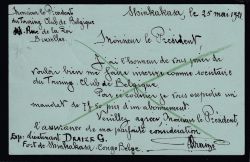 Monsieur le Président
du Touring Club de Belgique
44 Rue de la Loi
Bruxelles.
Shinkakasa, le 25 mai 1911
Monsieur le Président
J'ai l'honneur de vous prier de
vouloir bien me faire inscrire comme sociétaire
du Touring Club de Belgique.
Par ce courrier je vous expédie un
mandat de 7f50 prix d'un abonnement.
Veuillez agréer Monsieur le Président,
l'assurance de ma parfaite considération
Exp: Lieutenant G.
Fort de Shinkakasa Congo Belge.